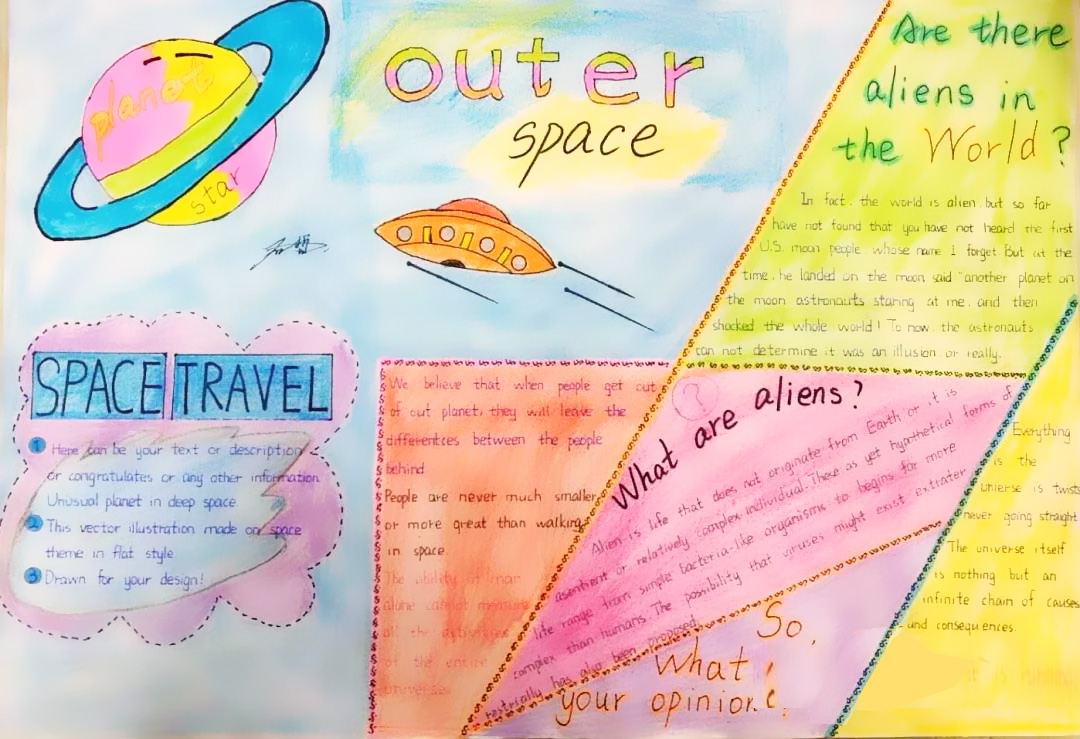 planet
star
outer
space
SPACE TRAVEL
1 Here can be your text or description
or congratulates or any other information
Unusual planet in deep space
2 This vector illustration made on space
theme in flat style
3 Drawn for your design!
We believe that when people get out
of out planet, they will leave the
differentces between the people
behind
People are never much smaller
or more great than walking
in space.
The ubility of man
alone cannot measure
all the
of the entire
universe
Are there
aliens in
the World?
In fact, the world is alien, but so far
have not found that you have not heard the first
U.S. moon people whose name I forget. But at the
time, he landed on the moon said "another planet on
the moon astronauts staring at me, and then
shocked the whole world! To now, the astronauts
can not determine it was an illusion or really.
?
What are aliens?
Alien is life that does not originate from Earth or it is
asentient or relatively complex individual. These as yet hypothetical forms of
life range from simple bacteria-like organisms to begins far more
complex than humans. The possibility that viruses might exist extrater
restrically has also been proposed.
So,
what
your opinion?
Everything
is the
universe is twists
never going straight
The universe itself
is nothing but an
infinite chain of causes
and consequences.